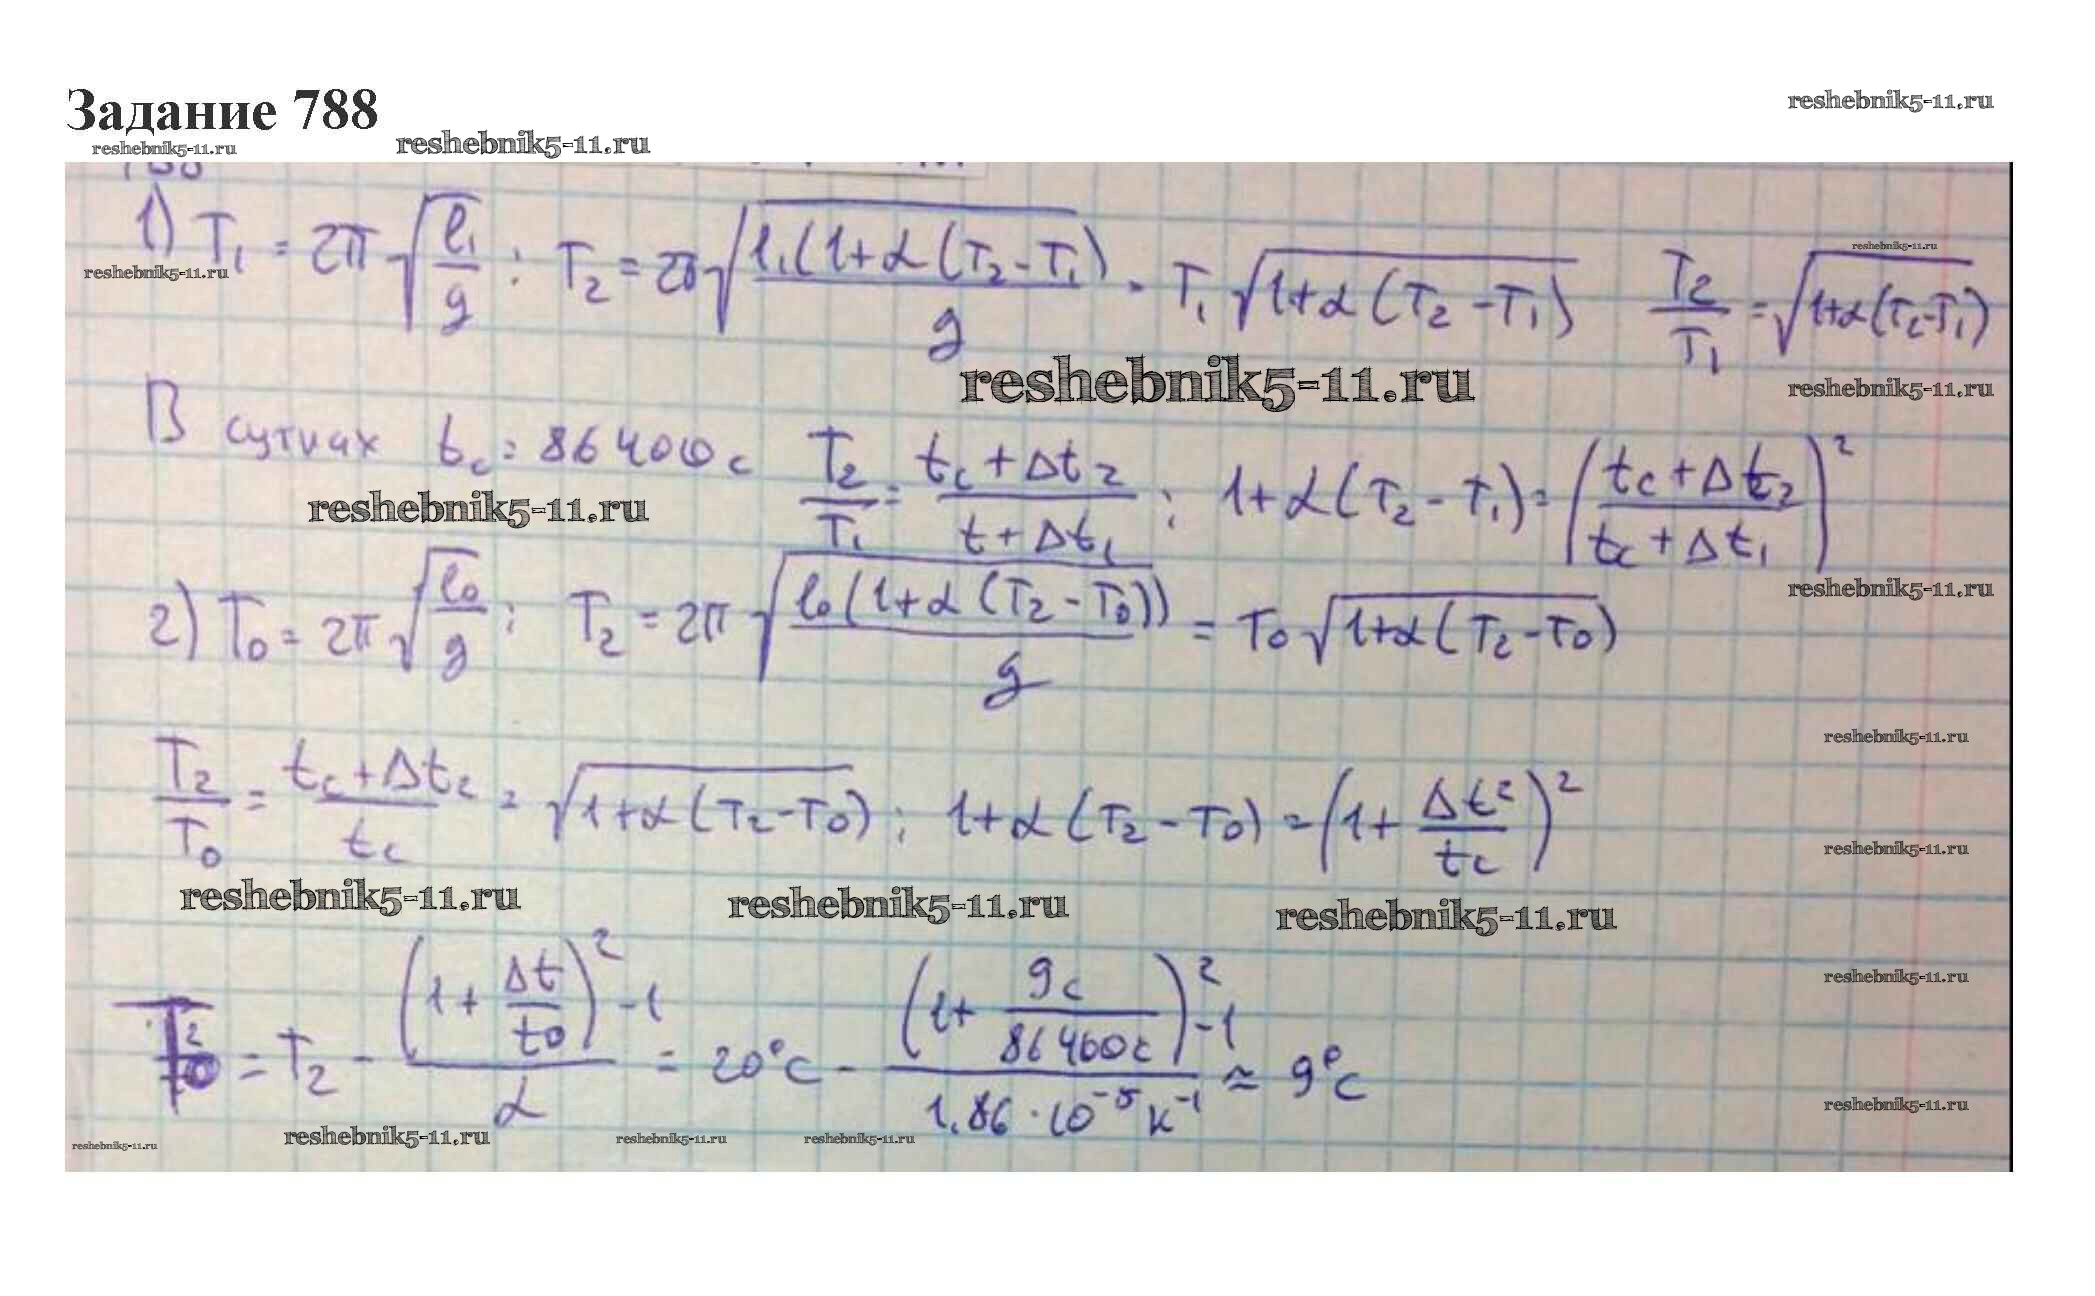 Задание 788
reshebnik5-11.ru
reshebnik5-11.ru reshebnik5-11.ru
788
1) T₁ = 2π√(l₁/g) ; T₂ = 2π√(l₁(1+α(T₂-T₁)/g) = T₁√(1+α(T₂-T₁)) T₂/T₁ = √(1+α(T₂-T₁))
reshebnik5-11.ru reshebnik5-11.ru
reshebnik5-11.ru reshebnik5-11.ru
В сутках t_c = 86400 c T₂/T₁ = (t_c+Δt₂)/(t+Δt₁) ; 1+α(T₂-T₁) = ((t_c+Δt₂)/(t_c+Δt₁))²
reshebnik5-11.ru
reshebnik5-11.ru
2) T₀ = 2π√(l₀/g) ; T₂ = 2π√(l₀(1+α(T₂-T₀))/g) = T₀√(1+α(T₂-T₀))
reshebnik5-11.ru
T₂/T₀ = (t_c+Δt₂)/t_c = √(1+α(T₂-T₀)) ; 1+α(T₂-T₀) = (1+Δt₂/t_c)²
reshebnik5-11.ru
reshebnik5-11.ru reshebnik5-11.ru reshebnik5-11.ru
reshebnik5-11.ru
= T₂ - ((1+Δt/t₀)²-1)/α = 20°C - ((1+9c/86400c)²-1)/(1,86·10⁻⁵K⁻¹) ≈ 9°C
reshebnik5-11.ru
reshebnik5-11.ru reshebnik5-11.ru reshebnik5-11.ru reshebnik5-11.ru